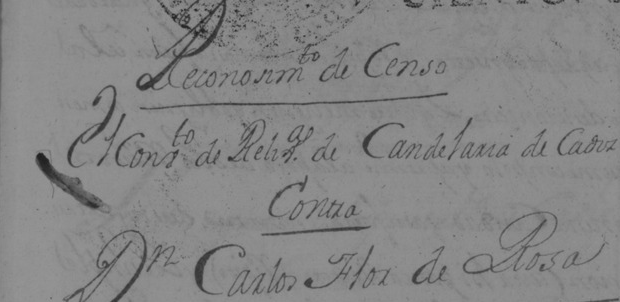 Reconosimto de Censo
El Convto de Religas de Candelaria de Cadiz
Contra
Dn Carlos Flor de Rosa